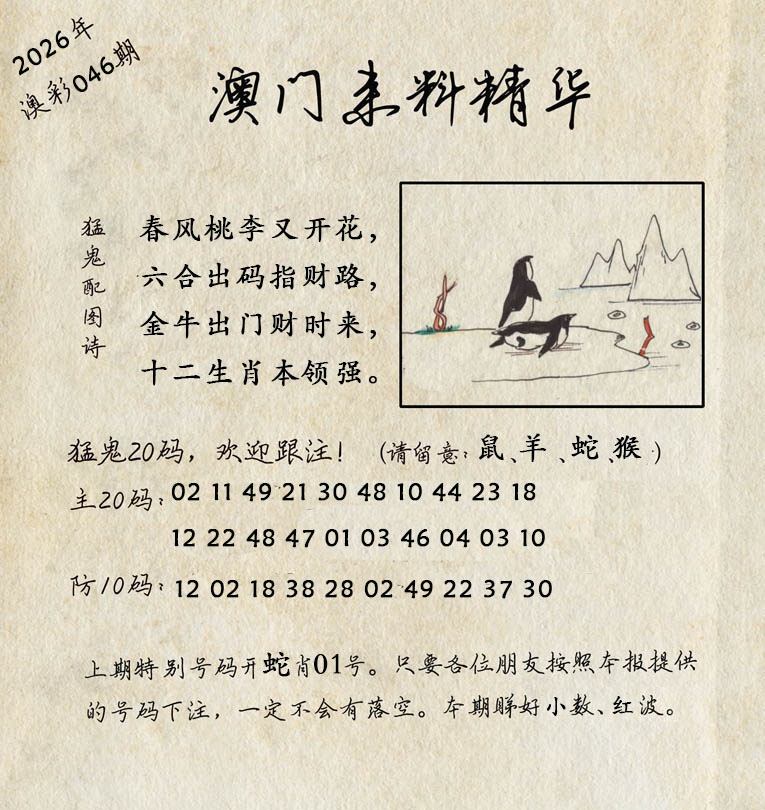 2026年
澳彩046期
澳门来料精华
猛鬼配图诗
春风桃李又开花，
六合出码指财路，
金牛出门财时来，
十二生肖本领强。
猛鬼20码，欢迎跟注！（请留意：鼠、羊、蛇、猴）
主20码：02 11 49 21 30 48 10 44 23 18
12 22 48 47 01 03 46 04 03 10
防10码：12 02 18 38 28 02 49 22 37 30
上期特别号码开蛇肖01号。只要各位朋友按照本报提供
的号码下注，一定不会有落空。本期睇好小数、红波。